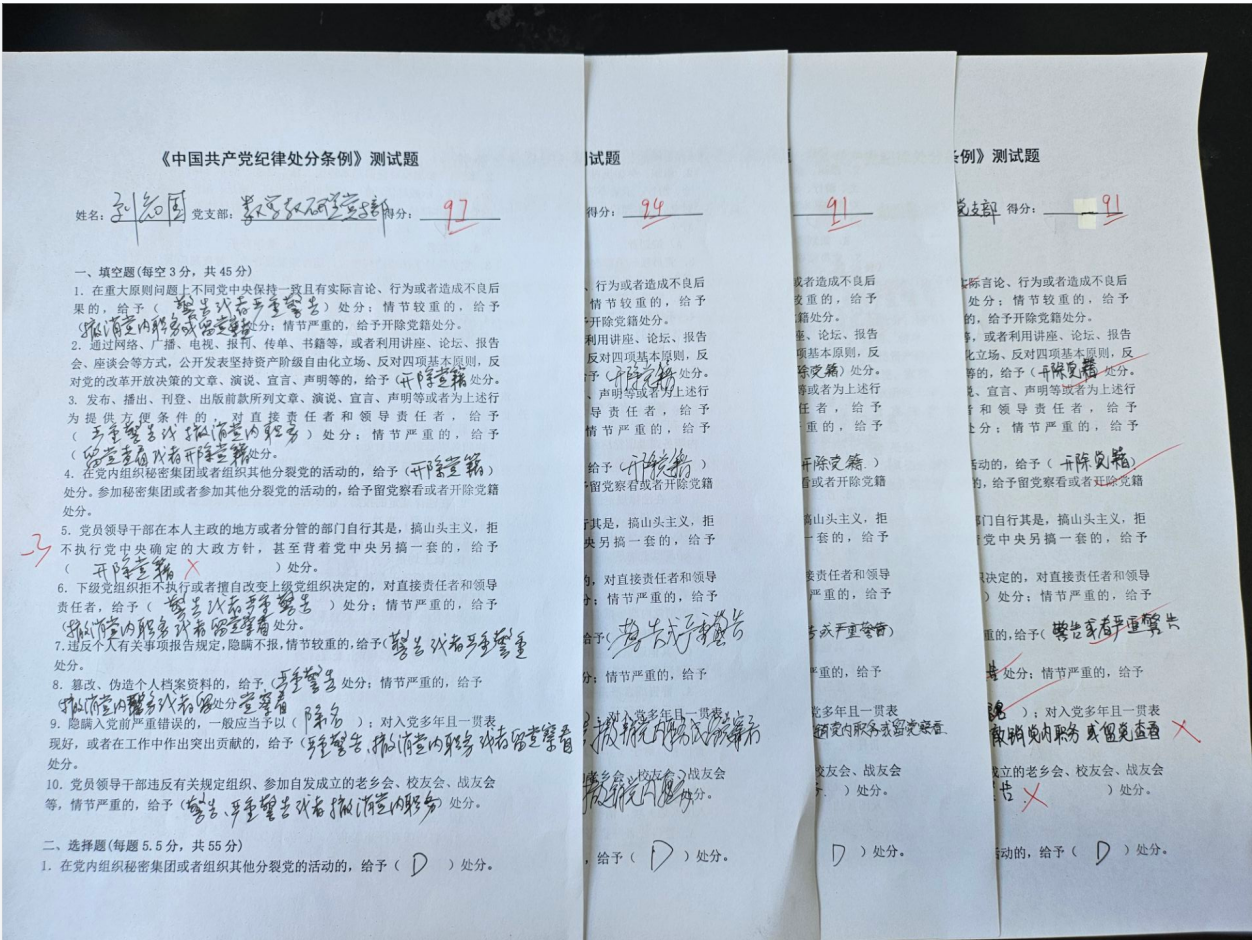 《中国共产党纪律处分条例》测试题
姓名： 党支部：数学教研室党支部 得分：97
一、填空题(每空3分，共45分)
1. 在重大原则问题上不同党中央保持一致且有实际言论、行为或者造成不良后
果的，给予（警告或者严重警告）处分；情节较重的，给予
（撤消党内职务或留党察看处分；情节严重的，给予开除党籍处分。
2. 通过网络、广播、电视、报刊、传单、书籍等，或者利用讲座、论坛、报告
会、座谈会等方式，公开发表坚持资产阶级自由化立场、反对四项基本原则，反
对党的改革开放决策的文章、演说、宣言、声明等的，给予（开除党籍处分。
3. 发布、播出、刊登、出版前款所列文章、演说、宣言、声明等或者为上述行
为提供方便条件的，对直接责任者和领导责任者，给予
（严重警告或撤消党内职务）处分；情节严重的，给予
（留党查看或者开除党籍处分。
4. 在党内组织秘密集团或者组织其他分裂党的活动的，给予（开除党籍）
处分。参加秘密集团或者参加其他分裂党的活动的，给予留党察看或者开除党籍
处分。
5. 党员领导干部在本人主政的地方或者分管的部门自行其是，搞山头主义，拒
-3
不执行党中央确定的大政方针，甚至背着党中央另搞一套的，给予
（开除党籍 ×）处分。
6. 下级党组织拒不执行或者擅自改变上级党组织决定的，对直接责任者和领导
责任者，给予（警告或者严重警告）处分；情节严重的，给予
（撤消党内职务或者留党察看处分。
7.违反个人有关事项报告规定，隐瞒不报，情节较重的，给予（警告或者严重警告
处分。
8. 篡改、伪造个人档案资料的，给予（严重警告处分；情节严重的，给予
（撤消党内职务或者留党察看处分
9. 隐瞒入党前严重错误的，一般应当予以（除名）；对入党多年且一贯表
现好，或者在工作中作出突出贡献的，给予（严重警告、撤消党内职务或者留党察看
处分。
10. 党员领导干部违反有关规定组织、参加自发成立的老乡会、校友会、战友会
等，情节严重的，给予（警告、严重警告或者撤消党内职务）处分。
二、选择题(每题5.5分，共55分)
1. 在党内组织秘密集团或者组织其他分裂党的活动的，给予（D）处分。
试题
得分：94
、行为或者造成不良后
情节较重的，给予
开除党籍处分。
利用讲座、论坛、报告
反对四项基本原则，反
予（开除党籍处分。
、声明等或者为上述行
导责任者，给予
情节严重的，给予
给予（开除党籍）
予留党察看或者开除党籍
行其是，搞山头主义，拒
央另搞一套的，给予
的，对直接责任者和领导
；情节严重的，给予
给予（警告或严重警告
节严重的，给予
；对入党多年且一贯表
撤销党内职务或留党察看
老乡会、校友会、战友会
处分。
，给予（D）处分。
91
或者造成不良后
重的，给予
籍处分。
座、论坛、报告
四项基本原则，反
除党籍）处分。
等或者为上述行
任者，给予
严重的，给予
开除党籍）
看或者开除党籍
搞山头主义，拒
一套的，给予
接责任者和领导
严重的，给予
告或严重警告）
重的，给予
党多年且一贯表
销党内职务或留党察看
校友会、战友会
）处分。
D）处分。
条例》测试题
党支部 得分：91
实际言论、行为或者造成不良后
处分；情节较重的，给予
的，给予开除党籍处分。
等，或者利用讲座、论坛、报告
化立场、反对四项基本原则，反
等的，给予（开除党籍处分。
说、宣言、声明等或者为上述行
者和领导责任者，给予
处分；情节严重的，给予
活动的，给予（开除党籍）
的，给予留党察看或者开除党籍
部门自行其是，搞山头主义，拒
党中央另搞一套的，给予
）处分。
织决定的，对直接责任者和领导
处分；情节严重的，给予
重的，给予（警告或者严重警告
告处分；情节严重的，给予
除名）；对入党多年且一贯表
撤销党内职务或留党查看 ×
成立的老乡会、校友会、战友会
告 ×）处分。
活动的，给予（D）处分。